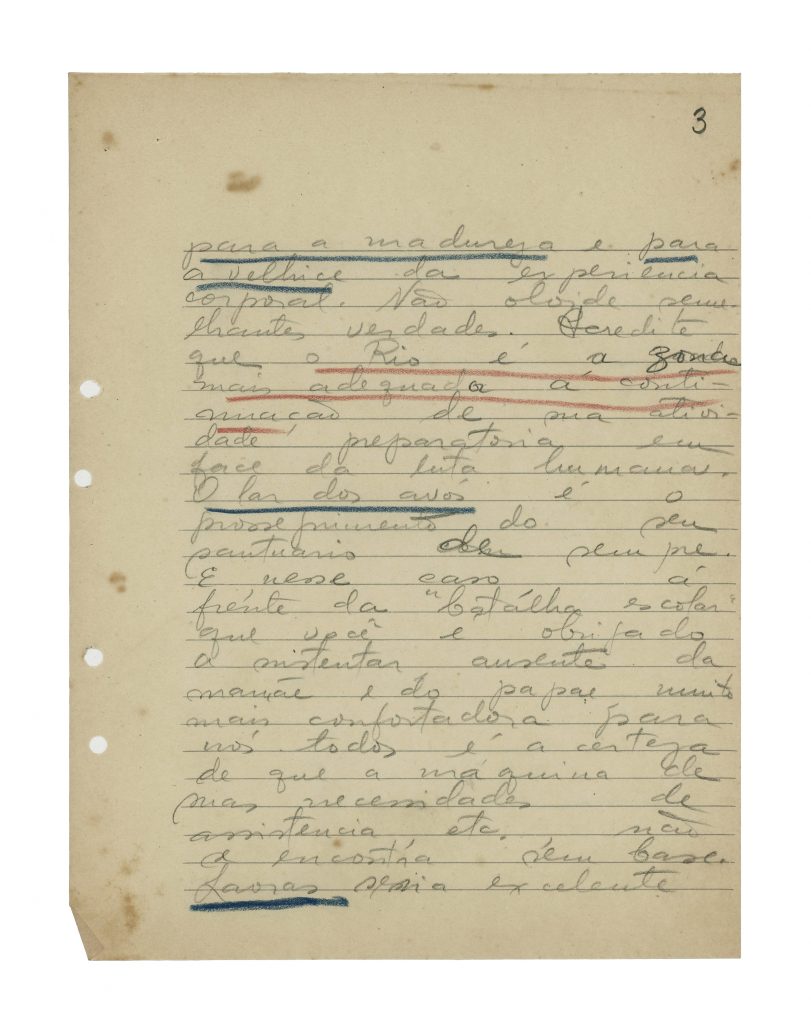 3
para a madureza e para
a velhice da experiencia
corporal. Não olvide seme-
lhantes verdades. Acredite
que o Rio é a zona
mais adequada á conti-
nuação de sua ativi-
dade preparatoria em
face da luta humana.
O lar dos avós é o
prosseguimento do seu
santuario de sempre.
E nesse caso á
frente da "batálha escolar"
que você é obrigado
a sustentar ausente da
mamãe e do papae muito
mais confortadora para
nós todos é a certeza
de que a máquina de
suas necessidades de
assistencia etc. não
a encontra sem base.
Lavras seria excelente